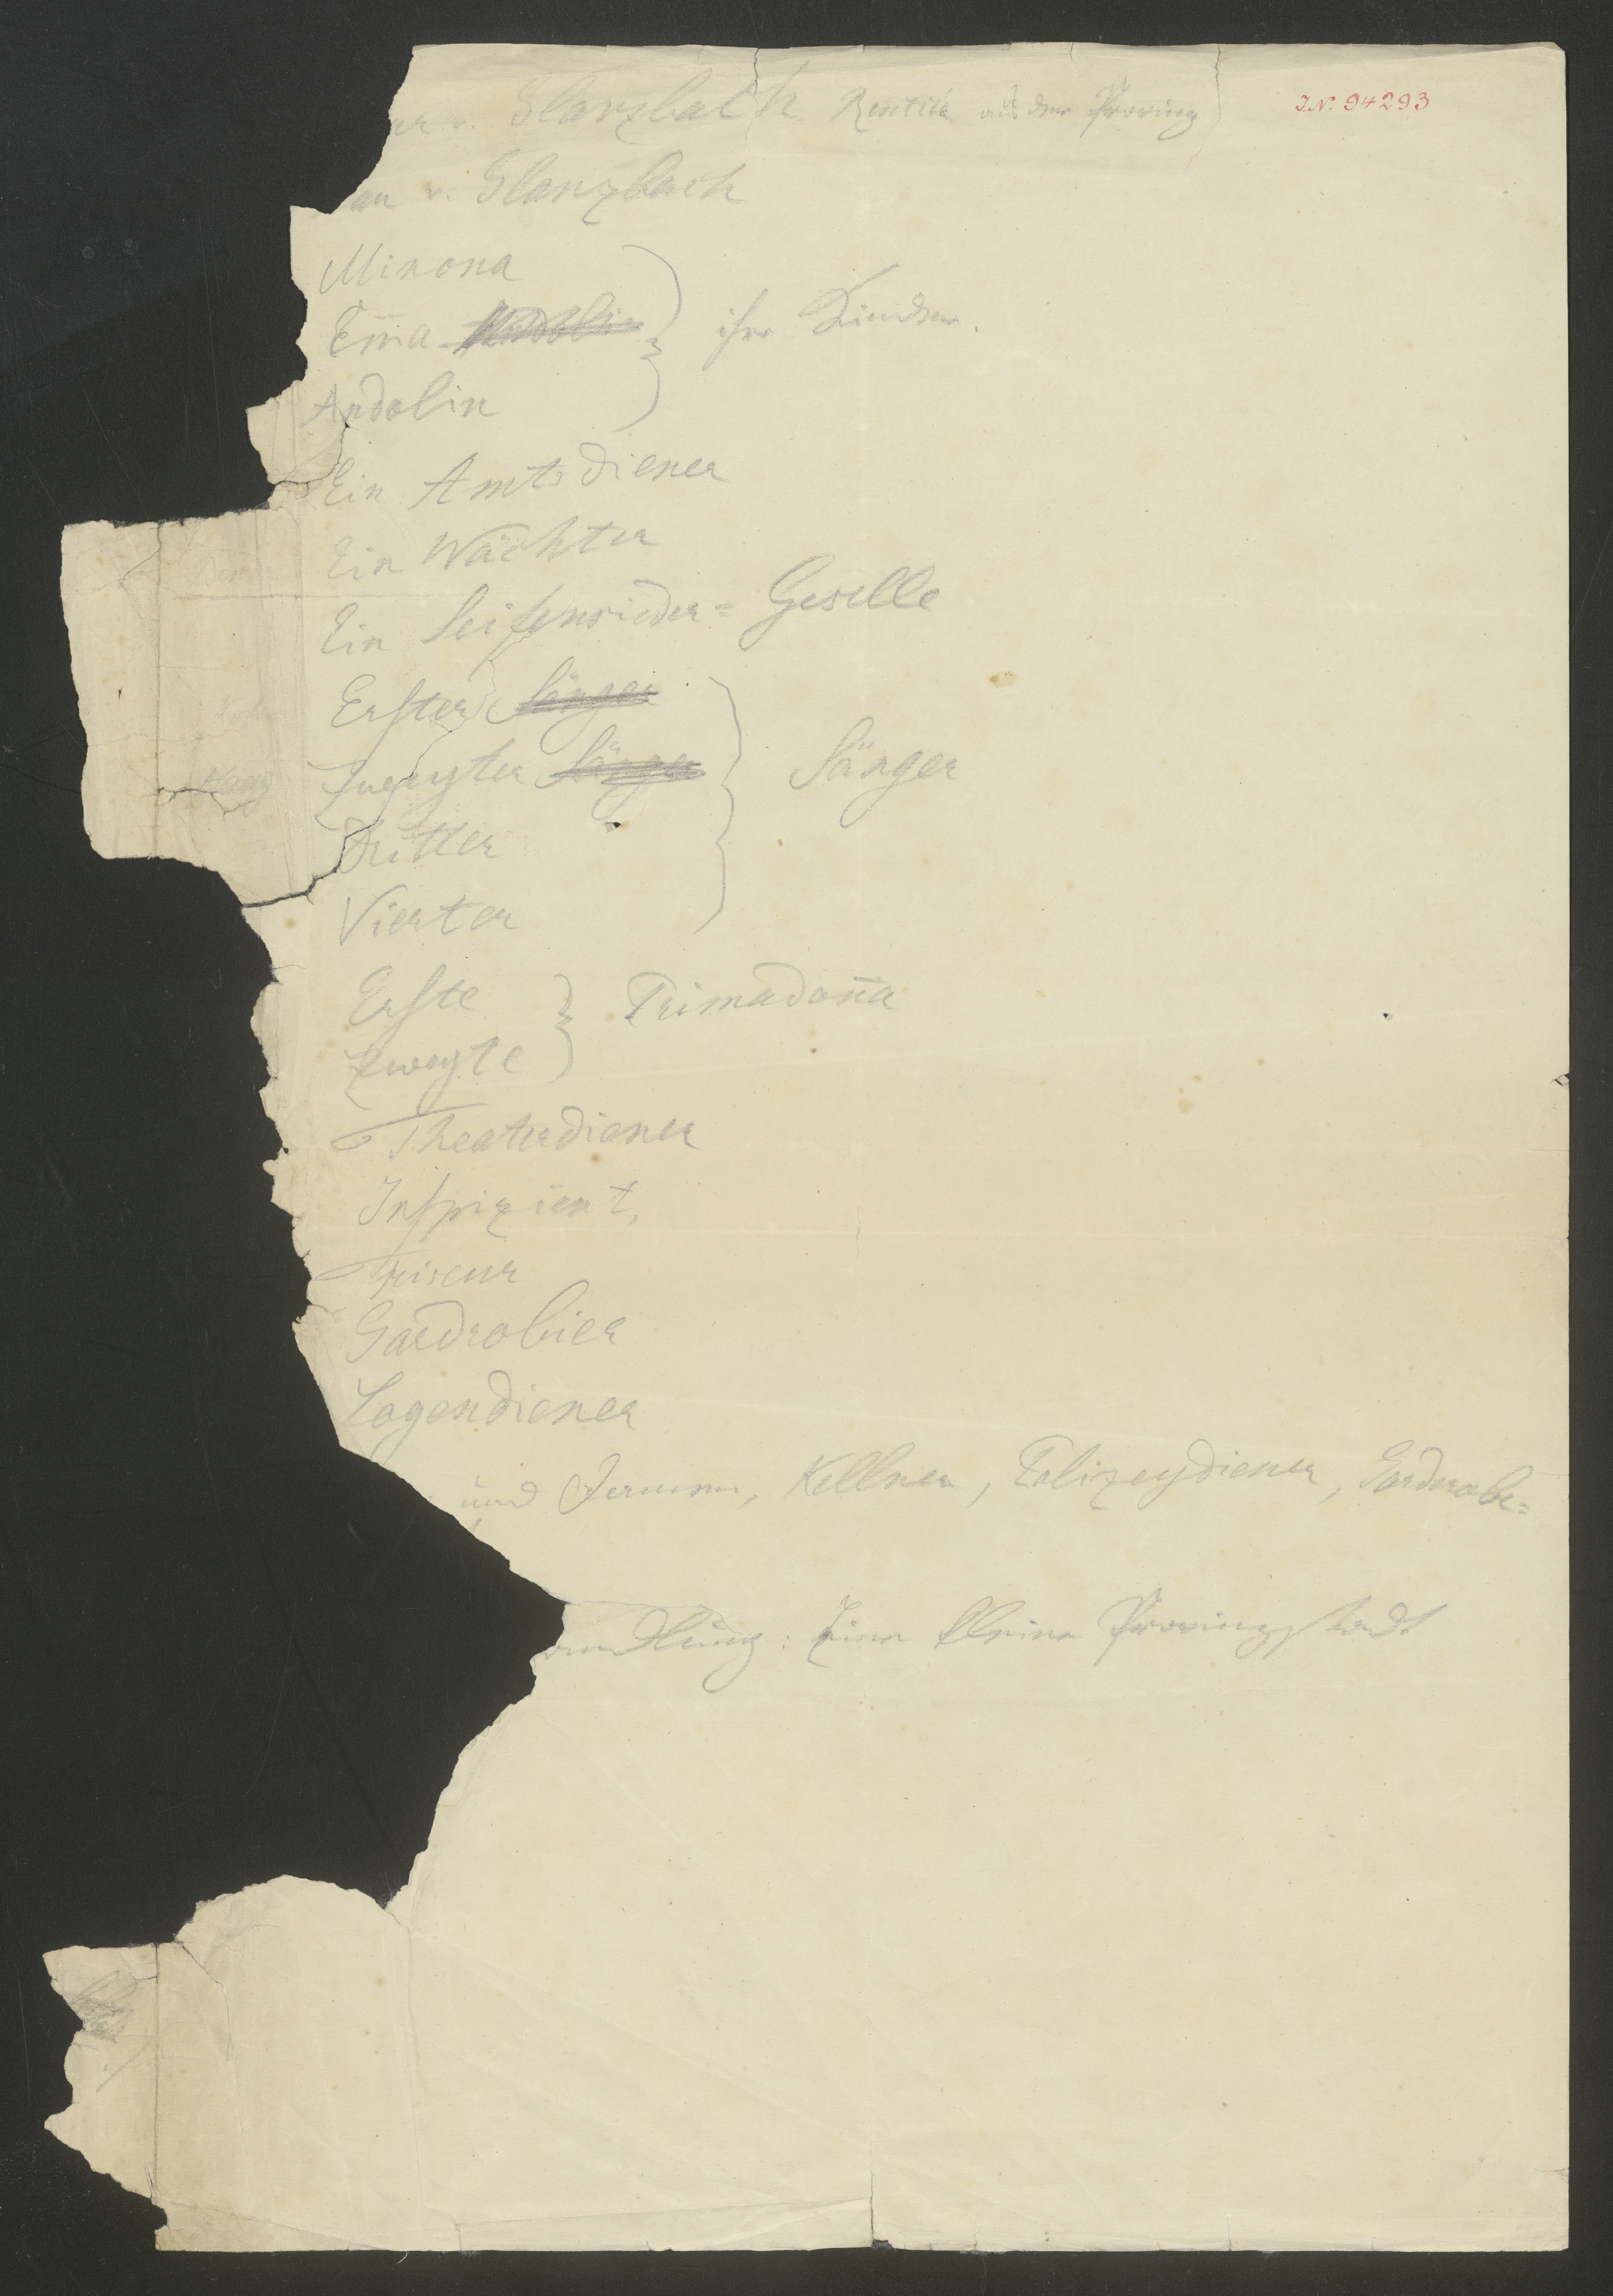 J.N. 94293
er v. Glanzbach Rentier aus der Provinz
au v. Glanzbach
Minona
Em̄a Andolin } ihre Kinder.
Andolin
Ein Amtsdiener
Ein Wächter
Ein Seifensieder= Geselle
Erster Sänger
Zweyter Sänger } Sänger
Dritter
Vierter
Erste } Primadon̄a
Zweyte
Theaterdiener
Inspizient,
Friseur
Gardrobier
Logendiener
und Damen, Kellner, Polizeydiener, Gardrobe=
andlung: Eine kleine Provinzstadt